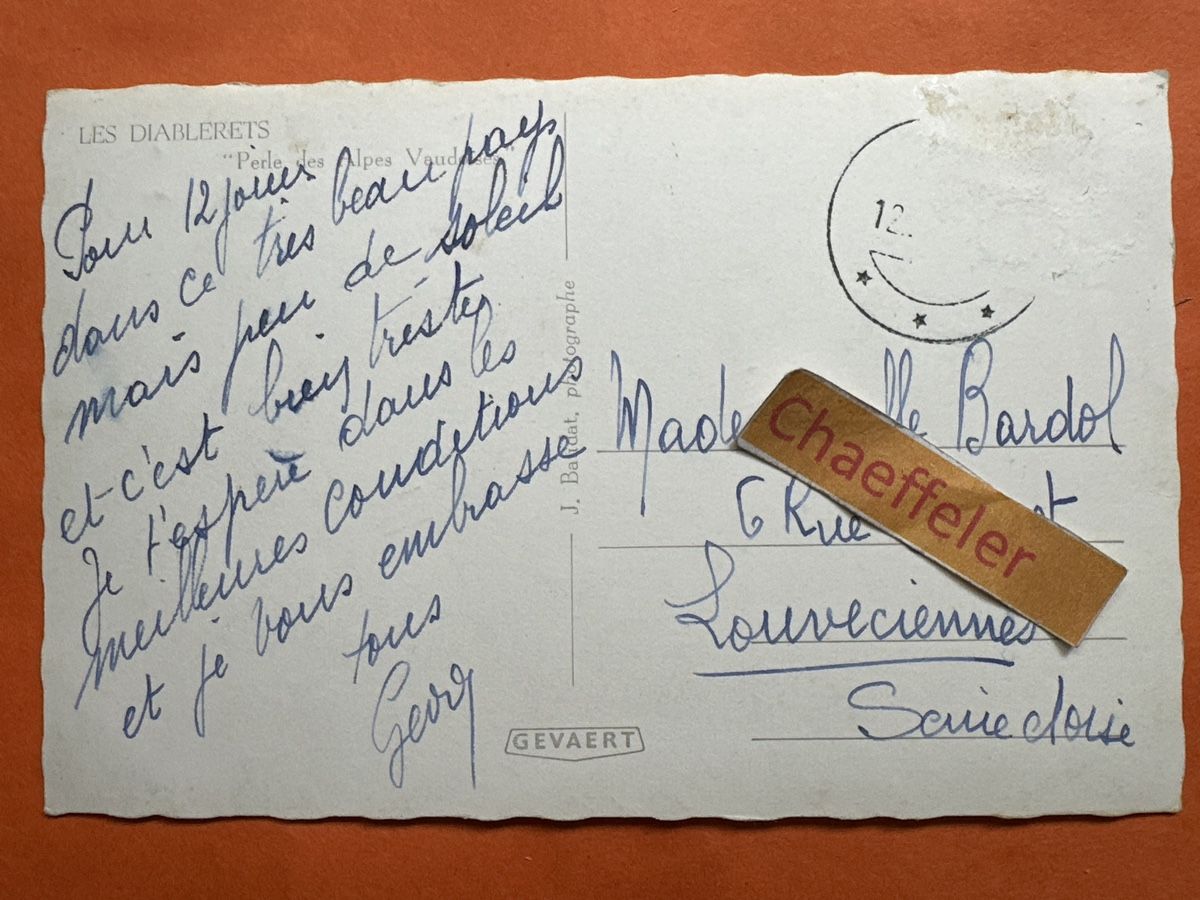 LES DIABLERETS
"Perle des Alpes Vaudoises"
Pour 12 jours
dans ce très beau pays
mais peu de soleil
et c'est bien triste
Je t'espère dans les
meilleures conditions
et je vous embrasse
tous
J. Baudat, photographe
GEVAERT
12.
Made lle Bardol
6 Rue t
Louveciennes
Seine et oise
Chaeffeler